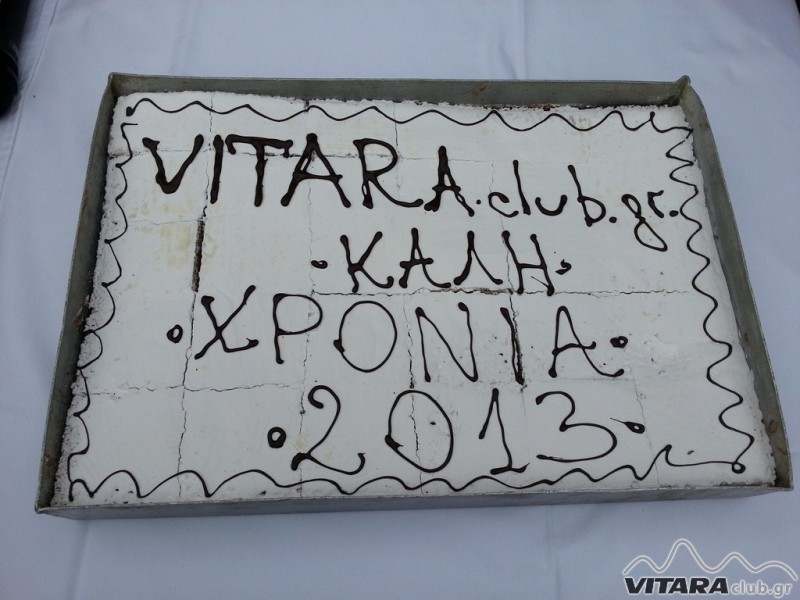 VITARA.club.gr.
·ΚΑΛΗ·
·ΧΡΟΝΙΑ·
·2013·
VITARAclub.gr